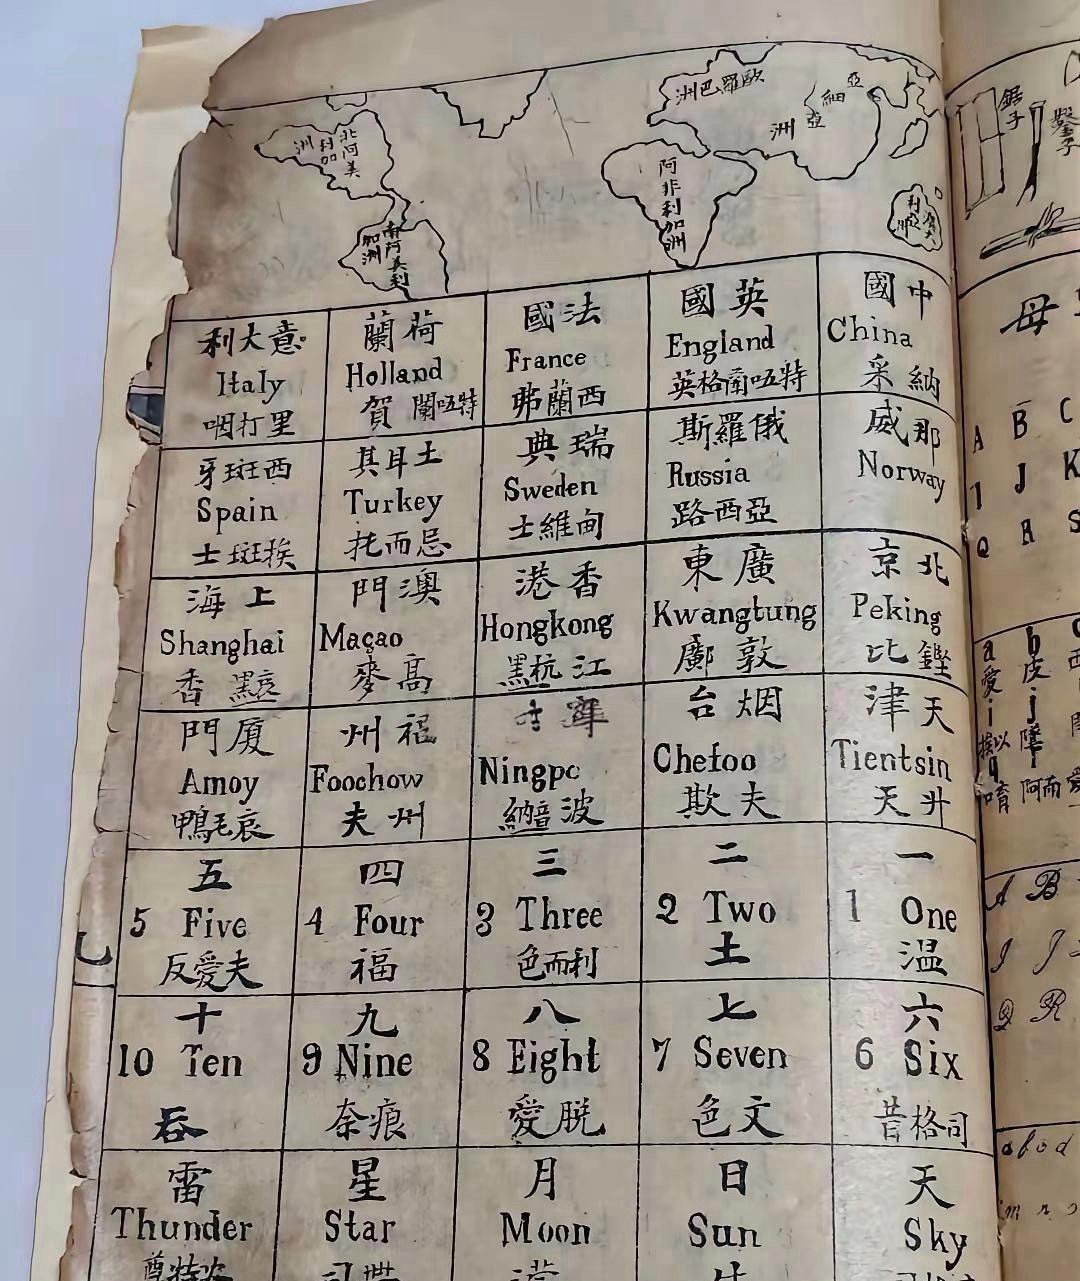 歐羅巴洲
亞細亞洲
阿非利加洲
北阿美利加洲
南阿美利加洲
中國
China
采納
英國
England
英格蘭呧特
法國
France
弗蘭西
荷蘭
Holland
賀蘭呧特
意大利
Italy
咽打里
那威
Norway
俄羅斯
Russia
路西亞
瑞典
Sweden
士維甸
土耳其
Turkey
托而忌
西班牙
Spain
士班挨
北京
Peking
比鏗
廣東
Kwangtung
鄺敦
香港
Hongkong
江
澳門
Maçao
麥高
上海
Shanghai
香
天津
Tientsin
天升
烟台
Chefoo
欺夫
Ningpo
波
福州
Foochow
夫州
廈門
Amoy
一
1 One
温
二
2 Two
土
三
3 Three
色而利
四
4 Four
福
五
5 Five
反愛夫
六
6 Six
昔格司
七
7 Seven
色文
八
8 Eight
愛脱
九
9 Nine
奈痕
十
10 Ten
吞
天
Sky
日
Sun
月
Moon
星
Star
雷
Thunder
鋸子
鑿子
母
A B C
I J K
Q R S
a b
愛 皮
i j
A B
I J
Q R